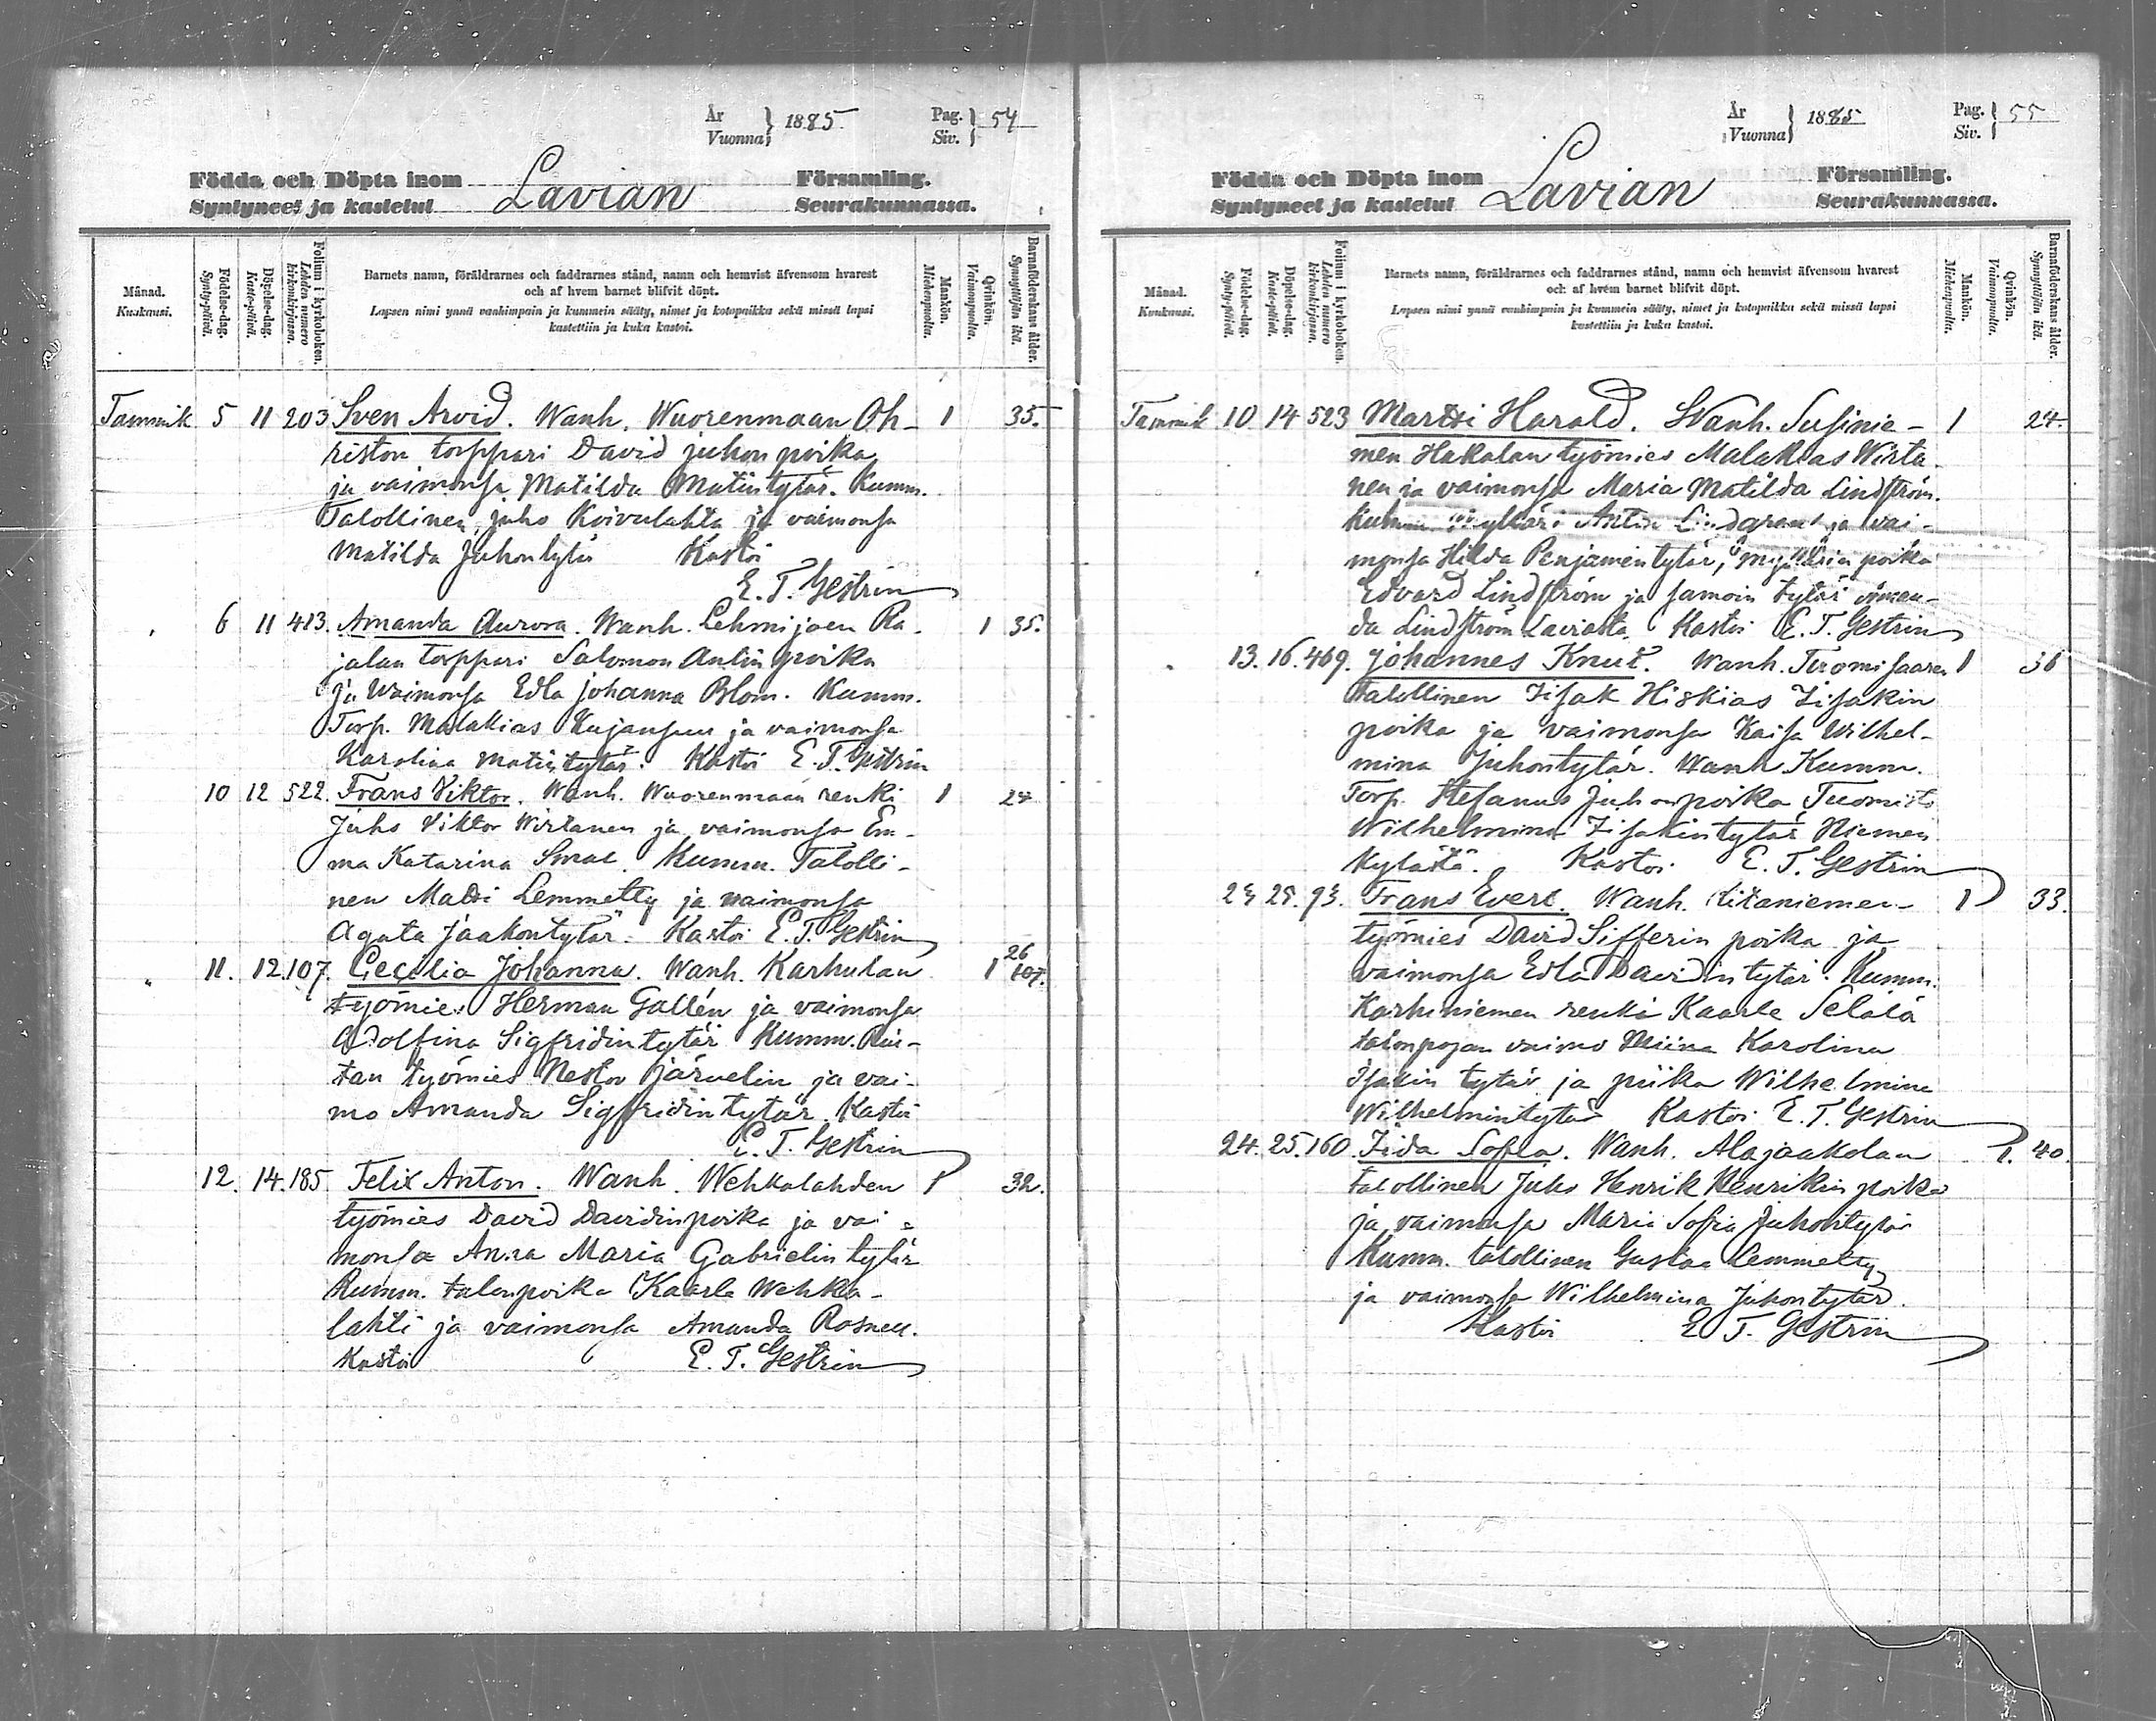 År
Vuonna } 1885
Pag.
Siv. } 54
Födda och Döpta inom Lavian Församling.
Syntyneet ja kastetut Seurakunnassa.
Månad.
Kuukausi.
Födelse-dag.
Synty-päivä.
Döpelse-dag.
Kaste-päivä.
Folium i kyrkoboken.
Lehden numero kirkonkirjassa.
Barnets namn, föräldrarnes och faddrarnes stånd, namn och hemvist äfvensom hvarest
och af hvem barnet blifvit döpt.
Lapsen nimi ynnä vanhimpain ja kummein sääty, nimet ja kotopaikka sekä missä lapsi
kastettiin ja kuka kastoi.
Mankön.
Miehenpuolta.
Qvinkön.
Vaimonpuolta.
Barnaföderskans ålder.
Synnyttäjän ikä.
Tammik. 5 11 203 Sven Arvid. Wanh. Wuorenmaan Oh- 1 35.
riston torppari David Juhon poika
ja vaimonsa Matilda Matintytär. Kumm.
Talollinen Juho Koivulahta ja vaimonsa
Matilda Juhontytär Kastoi
E. T. Gestrin
" 6 11 413. Amanda Aurora. Wanh. Lehmijoen Ra- 1 35.
jalan torppari Salomon Antin poika
ja Waimonsa Edla Johanna Blom. Kumm.
Torp. Malakias Kujansuu ja vaimonsa
Karolina Matintytär. Kastoi E. T. Gestrin
10 12 522. Frans Viktor. Wanh. Wuorenmaan renki 1 24
Juho Viktor Wirtanen ja vaimonsa Em-
ma Katarina Kumm. Talolli-
nen Matti Lemmetty ja vaimonsa
Agata Jaakontytär. Kastoi E. T. Gestrin
" 11. 12. 107. Cecilia Johanna. Wanh. Karhulan 1 26 107.
työmies Herman Gallén ja vaimonsa
Adolfina Sigfridintytär Kumm.
tan työmies Nestor Järvelin ja vai-
mo Amanda Sigfridintytär. Kastoi
E. T. Gestrin
12. 14. 185. Felix Anton. Wanh. Wehkalahden 1 32.
työmies David Davidinpoika ja vai-
monsa Anna Maria Gabrielin tytär
Kumm. talonpoika Kaarle Wehka-
lahti ja vaimonsa Amanda Rosnell.
Kastoi E. T. Gestrin
År
Vuonna } 1885
Pag.
Siv. } 55
Födda och Döpta inom Lavian Församling.
Syntyneet ja kastetut Seurakunnassa.
Månad.
Kuukausi.
Födelse-dag.
Synty-päivä.
Döpelse-dag.
Kaste-päivä.
Folium i kyrkoboken.
Lehden numero kirkonkirjassa.
Barnets namn, föräldrarnes och faddrarnes stånd, namn och hemvist äfvensom hvarest
och af hvem barnet blifvit döpt.
Lapsen nimi ynnä vanhimpain ja kummein sääty, nimet ja kotopaikka sekä missä lapsi
kastettiin ja kuka kastoi.
Mankön.
Miehenpuolta.
Qvinkön.
Vaimonpuolta.
Barnaföderskans ålder.
Synnyttäjän ikä.
Tammik 10 14 523 Martti Harald. Wanh. Susinie- 1 24.
men Hakalan työmies Malakias Wirta-
nen ja vaimonsa Maria Matilda Lindström.
Kumm. Antin Lindgren ja vai-
monsa Hilda Penjamintytär, poika
Edvard Lindström ja samoin tytär Aman-
da Lindström Laviasta. Kastoi E. T. Gestrin
" 13. 16. 469. Johannes Knut. Wanh. Tuomisaaren 1 36
talollinen Iisak Hiskias Iisakin
poika ja vaimonsa Kaisa Wilhel-
mina Juhontytär. Wanh Kumm.
Torp. Stefanus Juhonpoika Tuomisto
Wilhelmina Iisakintytär Niemen
kylästä. Kastoi E. T. Gestrin
23 25. 93. Frans Evert. Wanh. Riitaniemen 1 33.
työmies David Sifferin poika ja
vaimonsa Edla Davidin tytär. Kumm.
Karhiniemen renki Kaarle Selälä
talonpojan vaimo Karolina
Isakin tytär ja piika Wilhelmina
Wilhelmintytär Kastoi E. T. Gestrin
24. 25. 160. Iida Sofia. Wanh. Alajaakolan 1. 40.
talollinen Juho Henrik Henrikin poika
ja vaimonsa Maria Sofia Juhontytär
Kumm. talollinen Gustaa Lemmetty
ja vaimonsa Wilhelmina Juhontytär.
Kastoi E. T. Gestrin